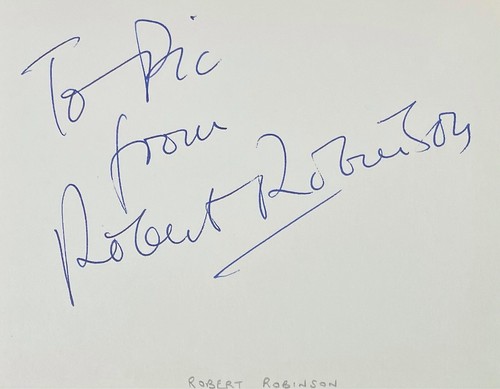 To Pic
from
Robert Robinson
ROBERT ROBINSON